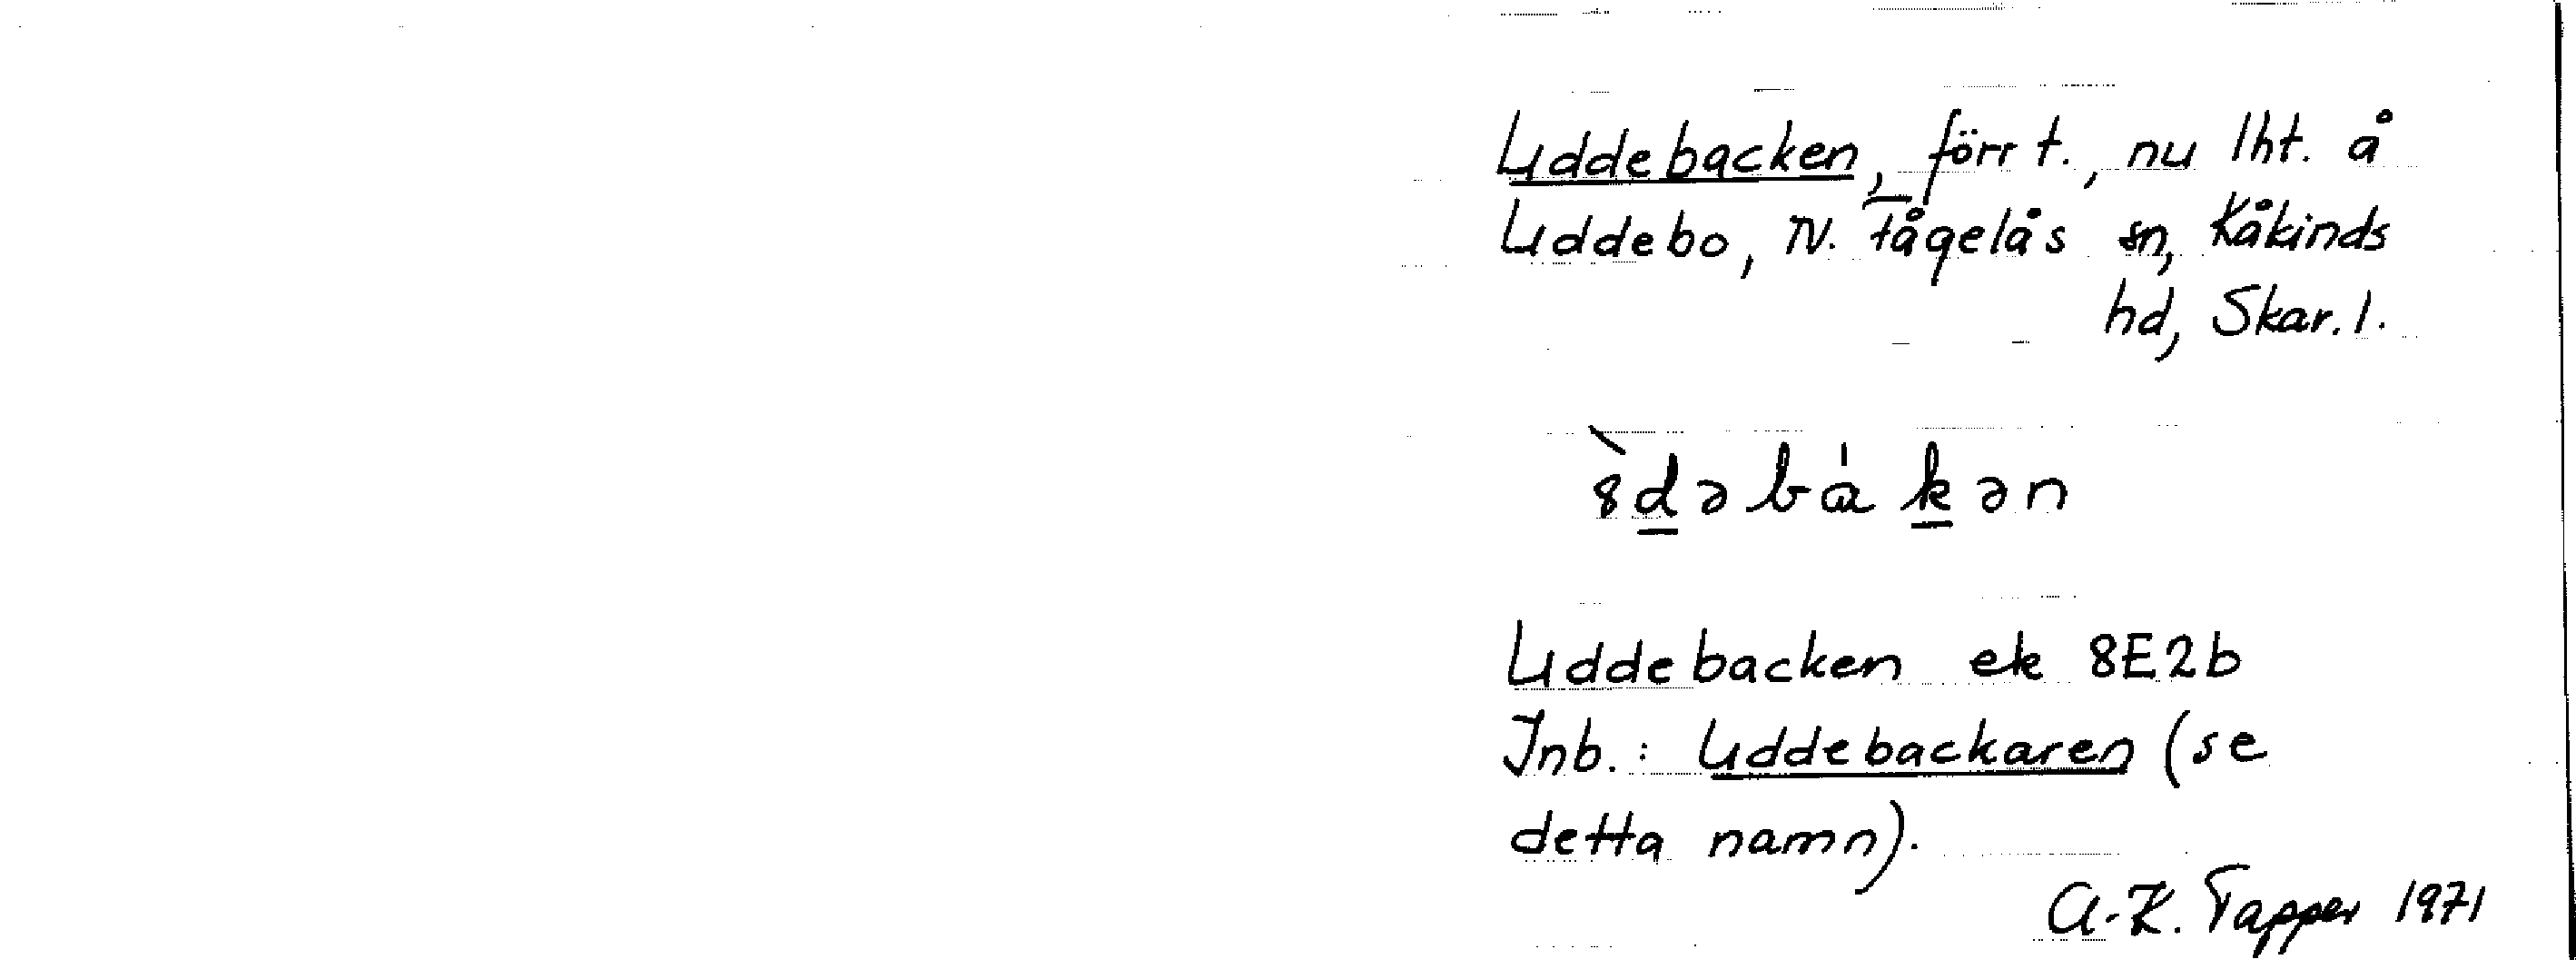 Uddebacken, förr t., nu lht. å
Uddebo, N. Fågelås sn, Kåkinds
hd, Skar. l.
8̀d̲əbȧk̲ən
Uddebacken ek 8E2b
Inb.: Uddebackaren (se
detta namn).
A.-K. Tapper 1971